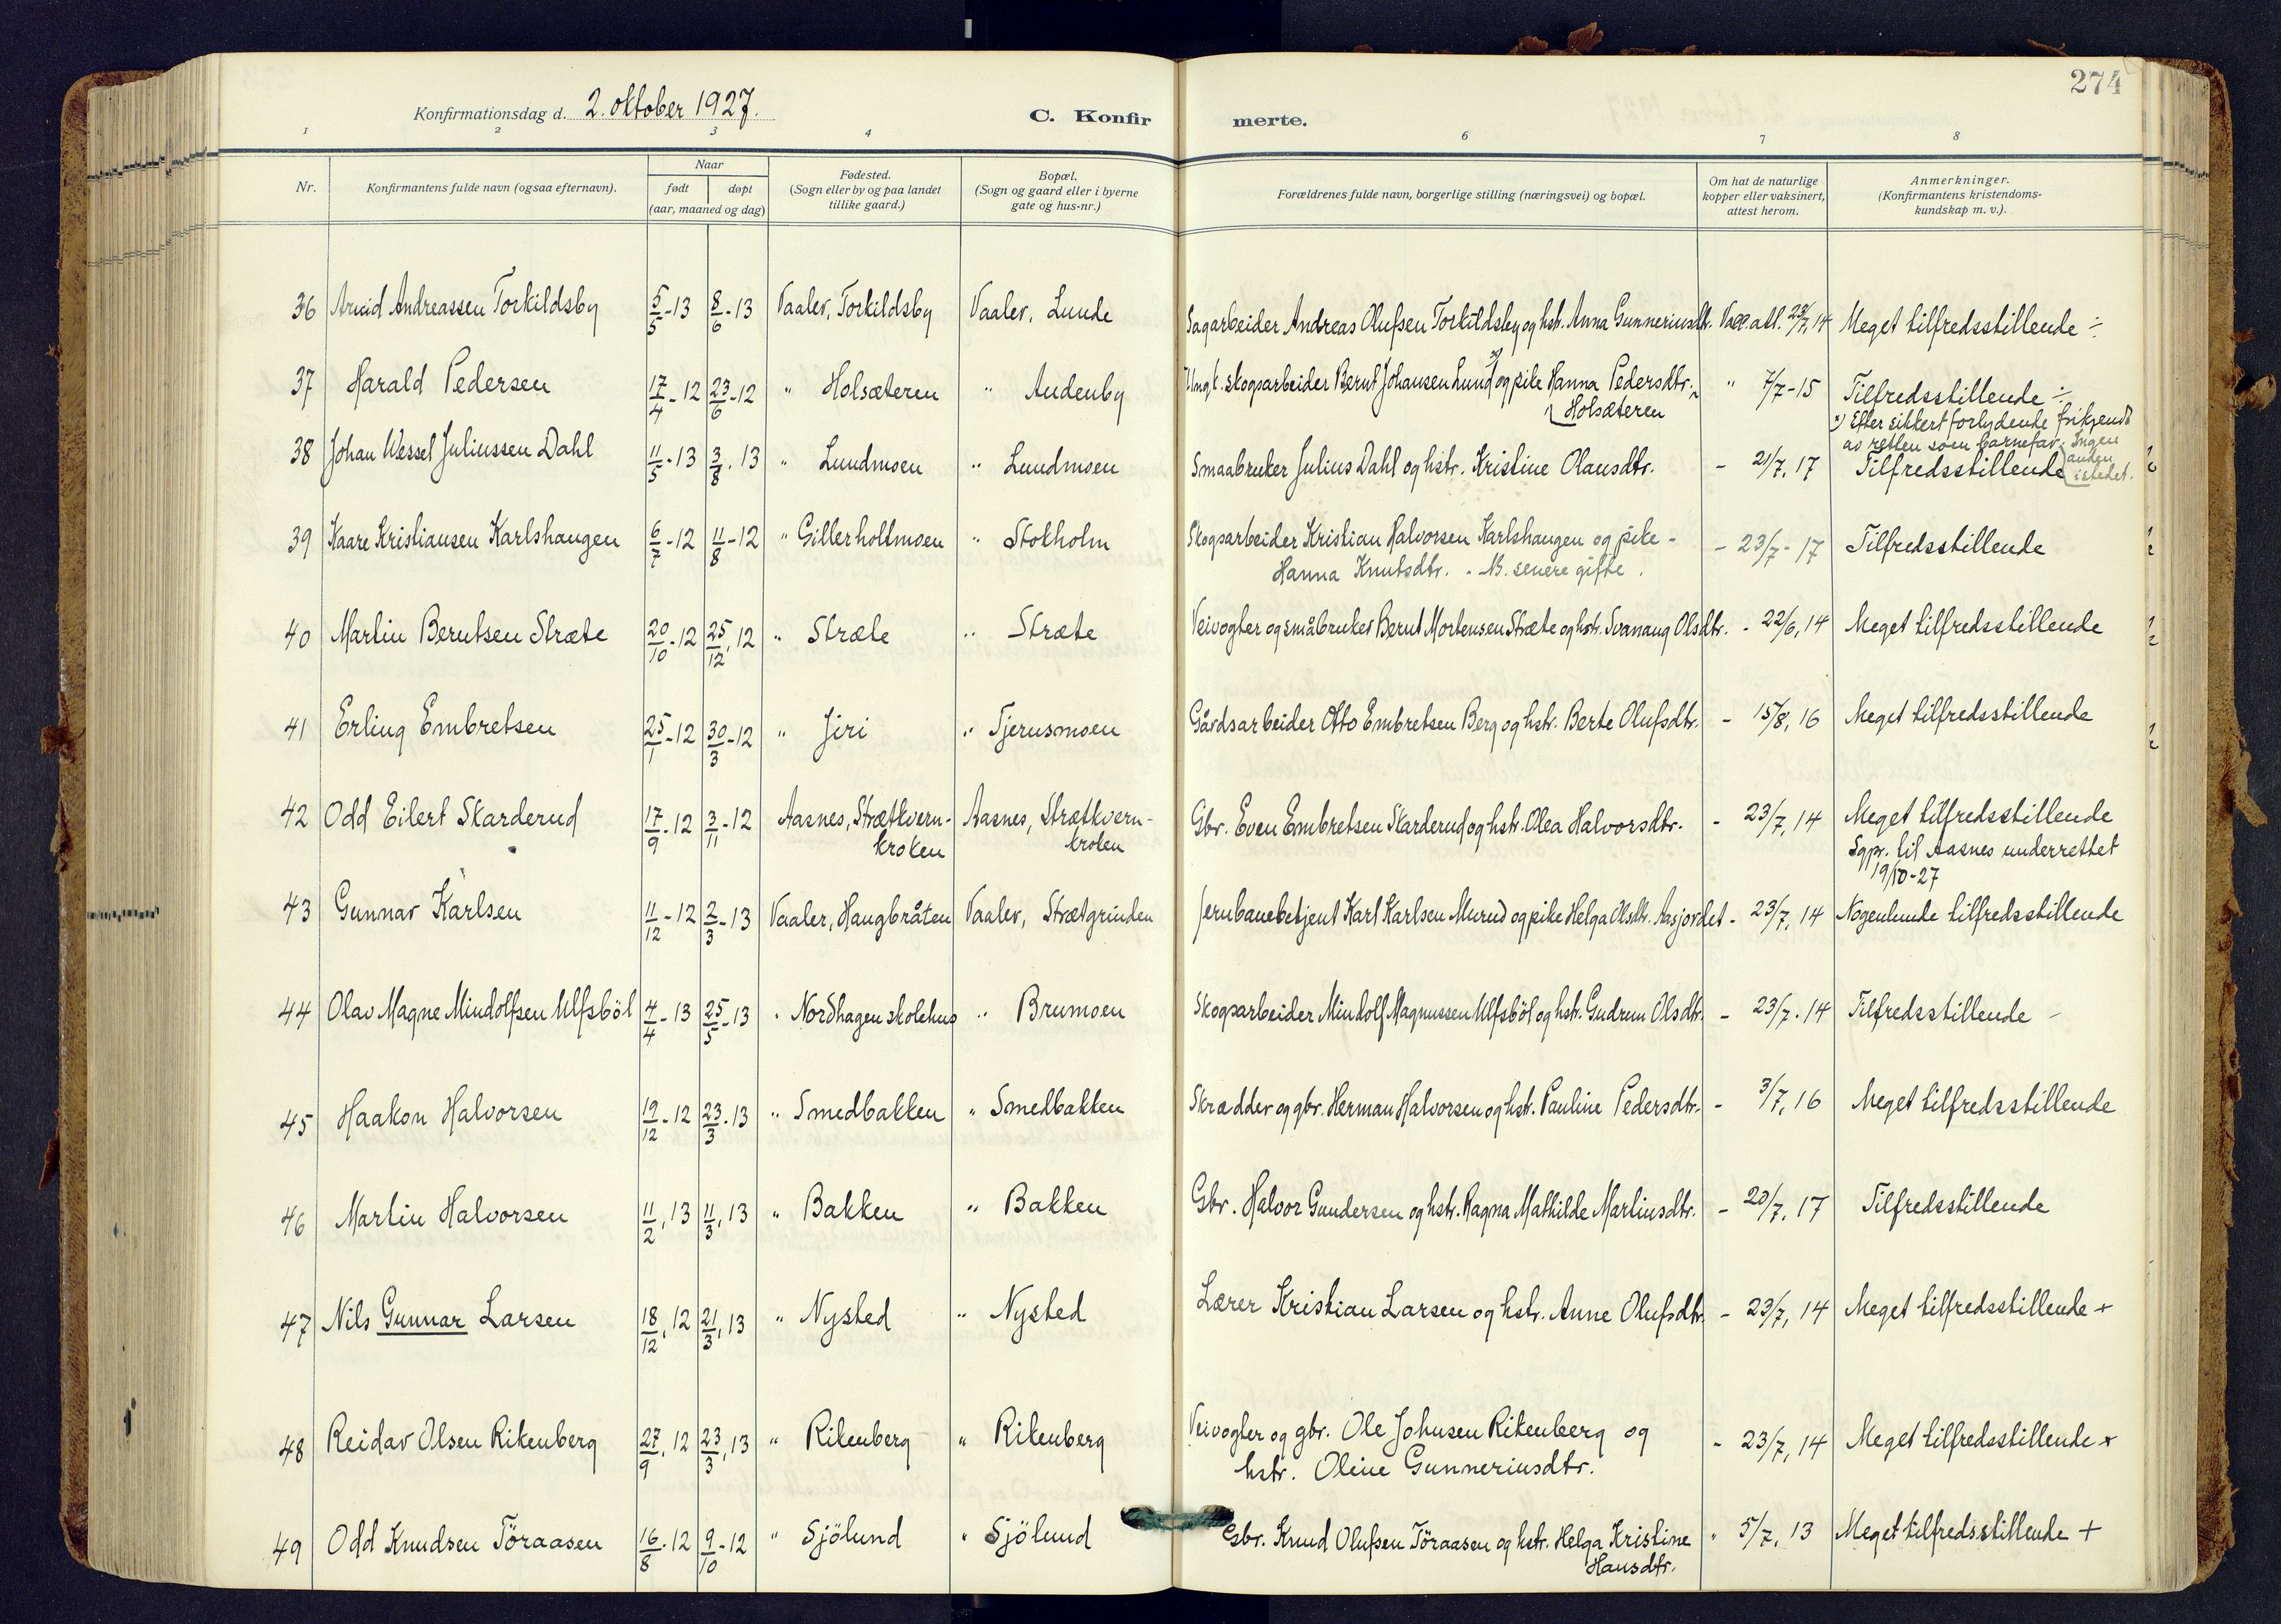 274
Konfirmationsdag d. 2. oktober 1927.
C. Konfir merte.
1 2 3 4 6 7 8
Nr.
Konfirmantens fulde navn (ogsaa efternavn).
Naar
født døpt
(aar, maaned og dag)
Fødested.
(Sogn eller by og paa landet
tillike gaard.)
Bopæl.
(Sogn og gaard eller i byerne
gate og hus-nr.)
Forældrenes fulde navn, borgerlige stilling (næringsvei) og bopæl.
Om hat de naturlige
kopper eller vaksinert,
attest herom.
Anmerkninger.
(Konfirmantens kristendoms-
kundskap m. v.).
36 Arvid Andreassen Torkildsby 5/5-13 8/6-13 Vaaler, Torkildsby Vaaler, Lunde Sagarbeider Andreas Olufsen Torkildsby og hstr. Anna Gunneriusdtr. Vacc. att. 29/7, 14 Meget tilfredsstillende ÷
37 Harald Pedersen 17/4-12 23/6-12 " Holsæteren " Audenby Ungk. skogsarbeider Bernt Johansen Lund x) og pike Hanna Pedersdtr. " 7/7-15 Tilfredsstillende ÷
Holsæteren
x) Efter sikkert forlydende frikjendt
av retten som barnefar. Ingen
anden
istedet.
38 Johan Wessel Juliussen Dahl 11/5-13 3/8. 13 " Lundmoen " Lundmoen Smaabruker Julius Dahl og hstr. Kristine Olausdtr. - 21/7, 17 Tilfredsstillende
39 Kaare Kristiansen Karlshaugen 6/7-12 11/8-12 " Gillerholtmoen " Stokholm Skogsarbeider Kristian Halvorsen Karlshaugen og pike - - 23/7-17 Tilfredsstillende
Hanna Knutsdtr. - NB. senere gifte.
40 Martin Berntsen Stræte 20/10-12 25/12, 12 " Stræte " Stræte Veivogter og småbruker Bernt Mortensen Stræte og hstr. Svanaug Olsdtr. - 22/6, 14 Meget tilfredsstillende
41 Erling Embretsen 25/1-12 30/3-12 " Jiri " Tjernsmoen Gårdsarbeider Otto Embretsen Berg og hstr. Berte Olufsdtr. - 15/8, 16 Meget tilfredsstillende
42 Odd Eilert Skarderud 17/9-12 3/11-12 Aasnes, Strætkvern- Aasnes, Strætkvern- Gbr. Even Embretsen Skarderud og hstr. Olea Halvorsdtr. - 23/7, 14 Meget tilfredsstillende
kroken kroken Sgpr. til Aasnes underrettet
19/10-27
43 Gunnar Karlsen 11/12-12 2/3-13 Vaaler, Haugbråten Vaaler, Strætgrinden Jernbanebetjent Karl Karlsen Murud og pike Helga Olsdtr. Aasjordet - 23/7, 14 Nogenlunde tilfredsstillende
44 Olav Magne Mindolfsen Ulfsböl 4/4-13 25/5-13 " Nordhagen skolehus " Brumoen Skogsarbeider Mindolf Magnussen Ulfsböl og hstr. Gudrun Olsdtr. - 23/7. 14 Tilfredsstillende -
45 Haakon Halvorsen 19/12-12 23/3-13 " Smedbakken " Smedbakken Skrædder og gbr. Herman Halvorsen og hstr. Pauline Pedersdtr. - 3/7, 16 Meget tilfredsstillende
46 Martin Halvorsen 11/2, 13 11/3, 13 " Bakken " Bakken Gbr. Halvor Gundersen og hstr. Ragna Mathilde Martinsdtr. - 20/7, 17 Tilfredsstillende
47 Nils Gunnar Larsen 18/12, 12 21/3, 13 " Nysted " Nysted Lærer Kristian Larsen og hstr. Anne Olufsdtr. - 23/7, 14 Meget tilfredsstillende +
48 Reidar Olsen Rikenberg 27/9, 12 23/3, 13 " Rikenberg " Rikenberg Veivogter og gbr. Ole Johnsen Rikenberg og - 23/7, 14 Meget tilfredsstillende x
hstr. Oline Gunneriusdtr.
49 Odd Knudsen Töraasen 16/8-12 9/10-12 " Sjölund " Sjölund Gbr. Knud Olufsen Töraasen og hstr. Helga Kristine " 5/7, 13 Meget tilfredsstillende +
Hansdtr.